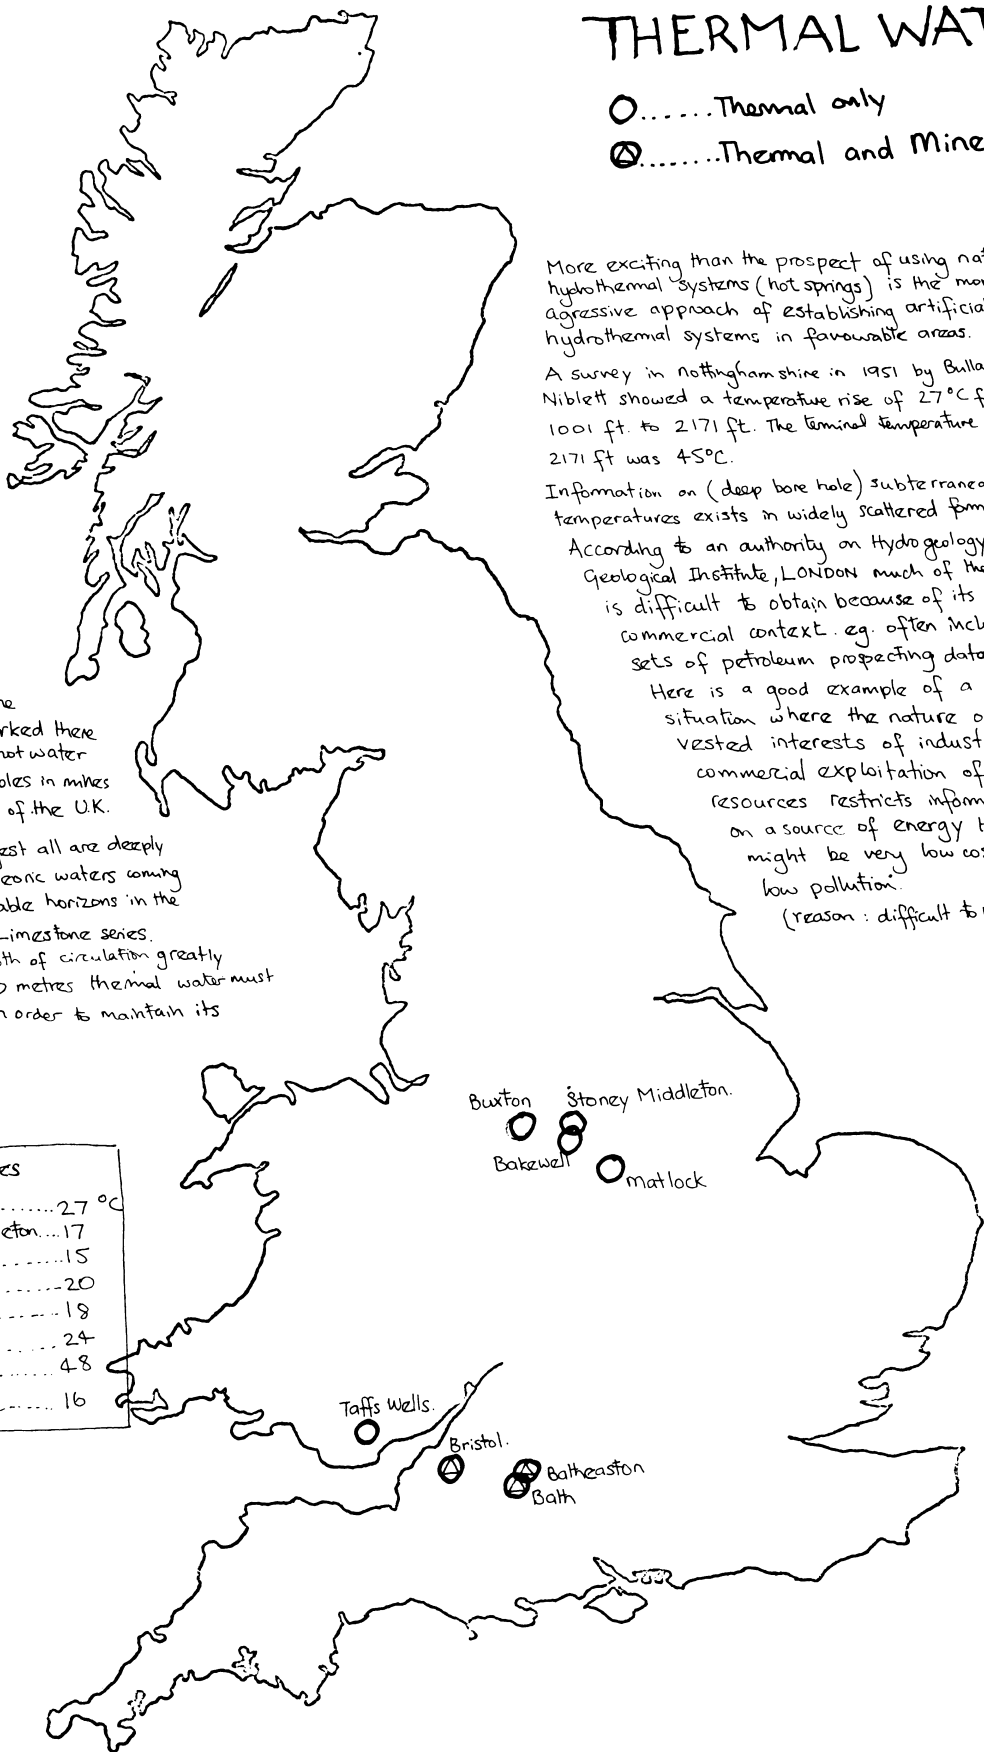 THERMAL WAT
O......Thermal only
........Thermal and Mine
More exciting than the prospect of using nat
hydrothermal systems (hot springs) is the mor
agressive approach of establishing artificia
hydrothermal systems in favourable areas.
A survey in nottinghamshire in 1951 by Bulla
Niblett showed a temperature rise of 27°C f
1001 ft. to 2171 ft. The teminal temperature
2171 ft was 45°C.
Information on (deep bore hole) subterranea
temperatures exists in widely scattered form
According to an authority on Hydrogeology
Geological Institute, LONDON much of the
is difficult to obtain because of its
commercial context. eg. often incl
sets of petroleum prospecting data
Here is a good example of a
situation where the nature o
vested interests of indust
commercial exploitation of
resources restricts inform
on a source of energy t
might be very low cos
low pollution.
(reason : difficult to
ne
rked there
hot water
oles in mines
of the U.K.
est all are deeply
eoric waters coming
able horizons in the
Limestone series.
th of circulation greatly
0 metres thermal water must
n order to maintain its
Buxton
Stoney Middleton.
Bakewell
matlock
es
.......27 °C
eton....17
.......15
.......20
.......18
.......24
.......48
.......16
Taffs Wells.
Bristol.
Batheaston
Bath